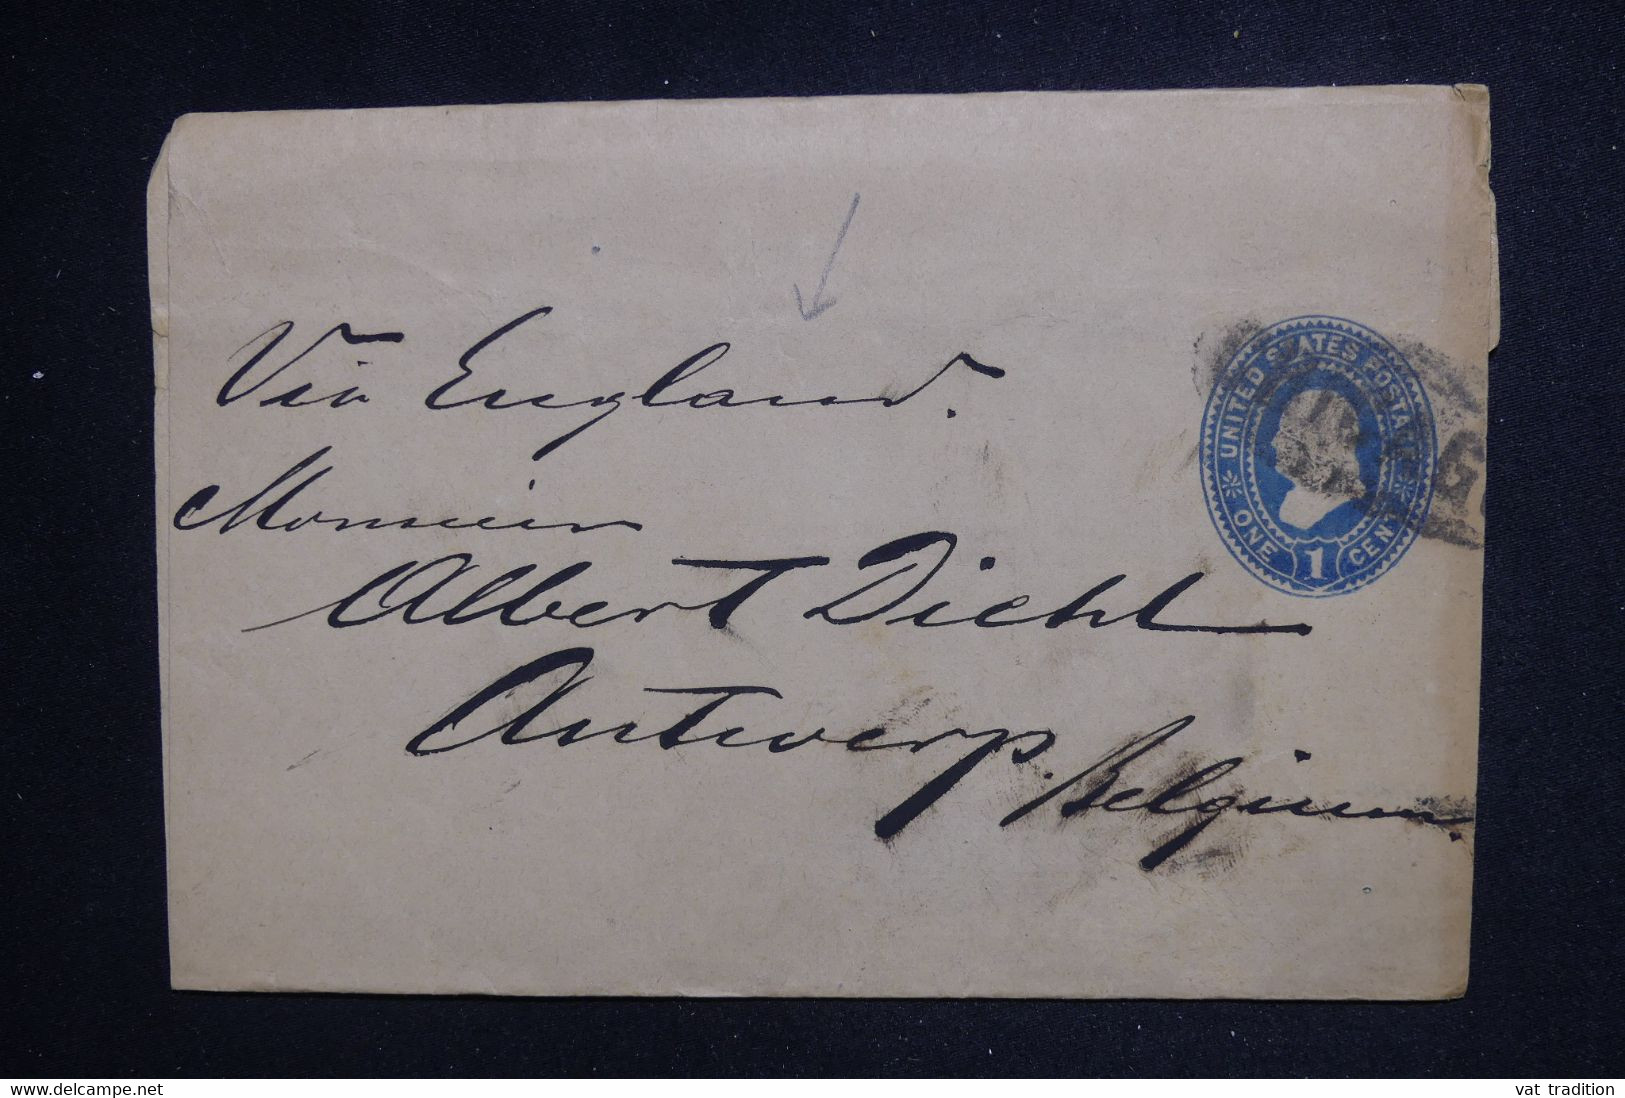 Via England.
Monsieur
Albert Diehl
Antwerp.
Belgium.
UNITED STATES POSTAGE
ONE 1 CENT
www.delcampe.net
vat tradition